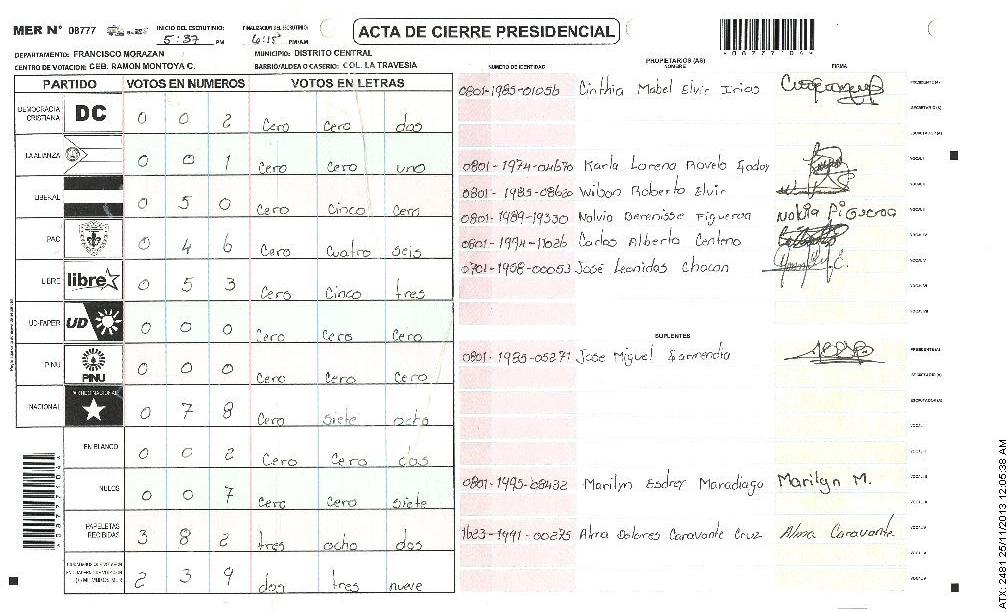 MER N° 08777 INICIO DEL ESCRUTINIO: 5:37 PM FINALIZACION DEL ESCRUTINIO: 6:15 PM/AM
ACTA DE CIERRE PRESIDENCIAL
*08777104*
DEPARTAMENTO: FRANCISCO MORAZAN MUNICIPIO: DISTRITO CENTRAL
CENTRO DE VOTACION: CEB. RAMON MONTOYA C. BARRIO/ALDEA O CASERIO: COL. LA TRAVESIA
PARTIDO VOTOS EN NUMEROS VOTOS EN LETRAS
DEMOCRACIA CRISTIANA DC 0 0 2 Cero Cero dos
LA ALIANZA 0 0 1 Cero Cero uno
LIBERAL 0 5 0 Cero Cinco Cero
PAC 0 4 6 Cero Cuatro seis
LIBRE libre 0 5 3 Cero Cinco tres
UD-FAPER UD 0 0 0 Cero Cero Cero
PINU PINU 0 0 0 Cero Cero Cero
NACIONAL PARTIDO NACIONAL 0 7 8 Cero siete ocho
EN BLANCO 0 0 2 Cero Cero dos
NULOS 0 0 7 Cero Cero siete
PAPELETAS RECIBIDAS 3 8 2 tres ocho dos
2 3 9 dos tres nueve
NUMERO DE IDENTIDAD PROPIETARIOS (AS) NOMBRE FIRMA
0801-1985-01056 Cinthia Mabel Elvir Irias PRESIDENTE(A)
SECRETARIO(A)
ESCRUTADOR(A)
0801-1974-04670 Karla Lorena Rovelo Godoy VOCAL I
0801-1985-08620 Wilson Roberto Elvir VOCAL II
0801-1989-19330 Nolvia Berenisse Figueroa Nolvia Figueroa VOCAL III
0801-1974-11026 Carlos Alberto Centeno VOCAL IV
0701-1958-00053 José Leonidas Chacon VOCAL V
VOCAL VI
VOCAL VII
SUPLENTES
0801-1985-05271 Jose Miguel Sarmendia PRESIDENTE(A)
SECRETARIO(A)
ESCRUTADOR(A)
VOCAL I
VOCAL II
0801-1995-08432 Marilyn Esdrey Maradiaga Marilyn M. VOCAL III
1623-1991-00275 Alma Dolores Caravante Cruz Alma Caravante
*08777104*
ATX: 2481 25/11/2013 12:05:38 AM